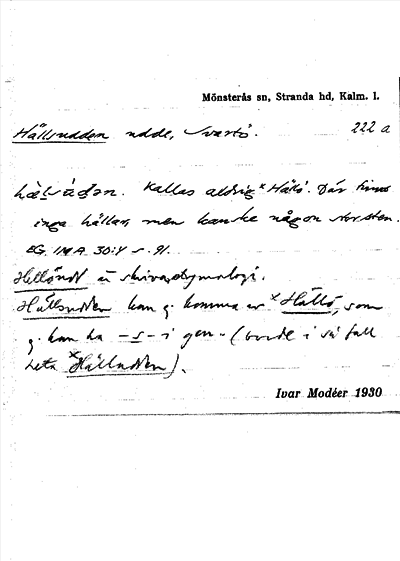 Mönsterås sn, Stranda hd, Kalm. l.
Hällsudden udde, Svartö. 222 a
Kallas aldrig *Hällö. Där finns
inga hällar, men kanske någon stor sten.
EG. IMA. 30:4 s. 91.
är skrivaretymologi.
Hällsudden kan ej komma av *Hällö, som
ej kan ha -s- i gen. (borde i så fall
heta *Hälludden).
Ivar Modéer 1930